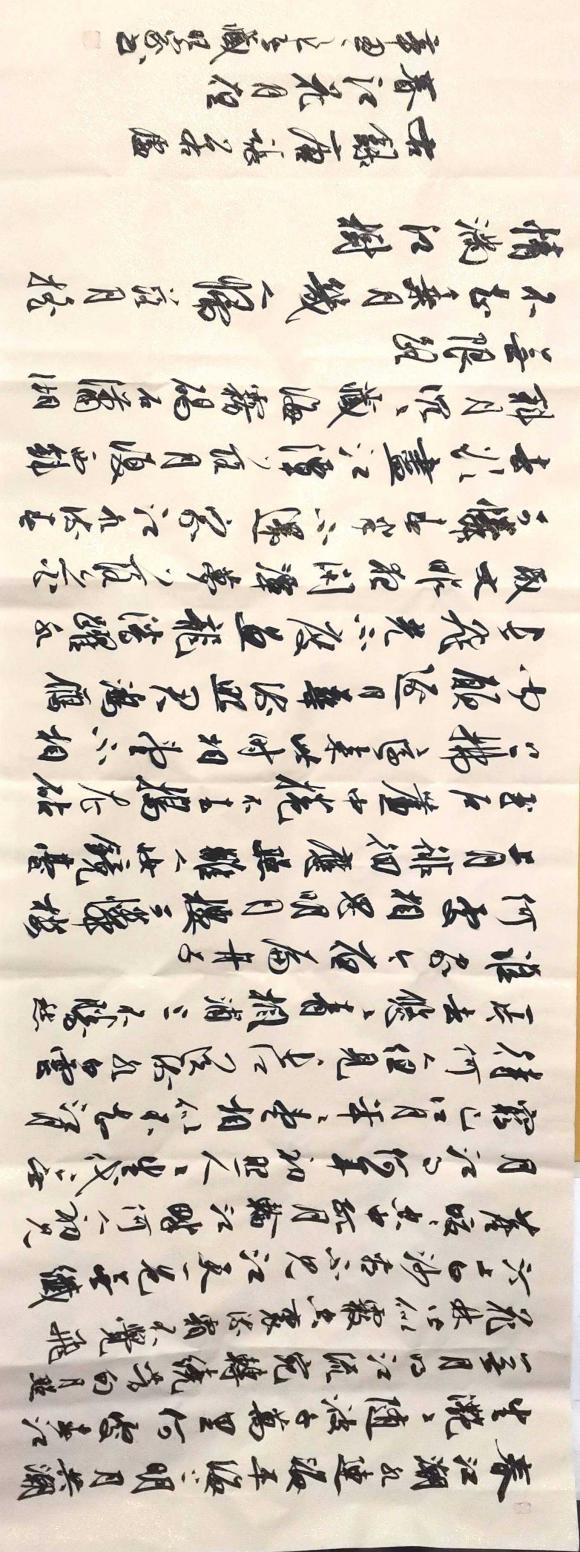 春江潮水連海平海上明月共潮
生灩灩隨波千萬里何處春江
無月明江流宛轉繞芳甸月照
花林皆似霰空裏流霜不覺飛
汀上白沙看不見江天一色無纖
塵皎皎空中孤月輪江畔何人初見
月江月何年初照人人生代代無
窮已江月年年望相似不知江月
待何人但見長江送流水白雲
一片去悠悠青楓浦上不勝愁
誰家今夜扁舟子
何處相思明月樓可憐樓
上月徘徊應照離人妝鏡臺
玉戶簾中捲不去搗衣砧
上拂還來此時相望不相
聞願逐月華流照君鴻雁
長飛光不度魚龍潛躍水
成文昨夜閑潭夢落花
可憐春半不還家江水流春
去欲盡江潭落月復西斜
斜月沉沉藏海霧碣石瀟湘
無限路
不知乘月幾人歸落月搖
情滿江樹
右錄唐張若虛
春江花月夜